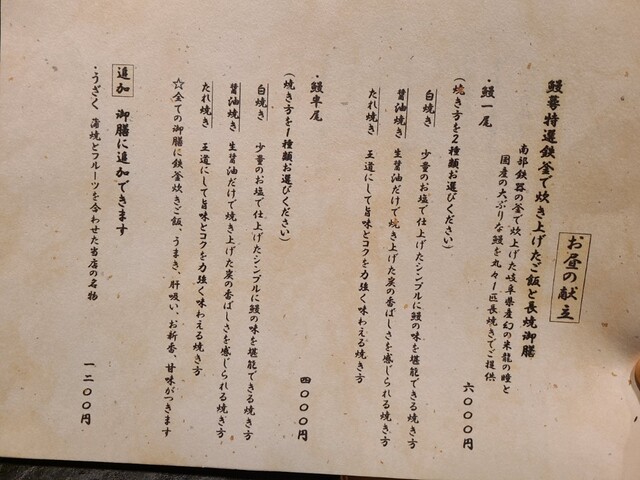 お昼の献立
鰻夢特選鉄釜で炊き上げたご飯と長焼御膳
南部鉄器の釜で炊上げた岐阜県産幻の米龍の瞳と
国産の大ぶりな鰻を丸々一匹長焼きでご提供
・鰻一尾 六〇〇〇円
(焼き方を2種類お選びください)
白焼き 少量のお塩で仕上げたシンプルに鰻の味を堪能できる焼き方
醤油焼き 生醤油だけで焼き上げた炭の香ばしさを感じられる焼き方
たれ焼き 王道にして旨味とコクを力強く味わえる焼き方
・鰻半尾 四〇〇〇円
(焼き方を1種類お選びください)
白焼き 少量のお塩で仕上げたシンプルに鰻の味を堪能できる焼き方
醤油焼き 生醤油だけで焼き上げた炭の香ばしさを感じられる焼き方
たれ焼き 王道にして旨味とコクを力強く味わえる焼き方
☆全ての御膳に鉄釜炊きご飯、うまき、肝吸い、お新香、甘味がつきます
追加 御膳に追加できます
・うざく 蒲焼とフルーツを合わせた当店の名物 一二〇〇円